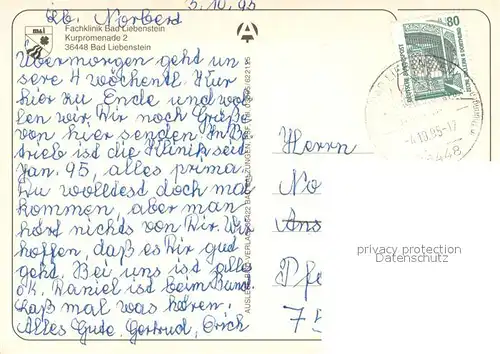 3.10.95
Lb. Norbert
Fachklinik Bad Liebenstein
Kurpromenade 2
36448 Bad Liebenstein
Übermorgen geht un
sere 4 wöchentl. Kur
hier zu Ende und wol
len wir Dir noch Grüße
von hier senden. In Be
trieb ist die Klinik seit
Jan. 95, alles prima.
Du wolltest doch mal
kommen, aber man
hört nichts von Dir. Wir
hoffen, daß es Dir gut
geht. Bei uns ist alles
ok. Daniel ist beim Bund.
Laß mal was hören.
Alles Gute. Gertrud, Erich
80
DEUTSCHE BUNDESPOST
-4.10.95-17
6448
Herrn
No
Ans
Pfe
75
privacy protection
Datenschutz